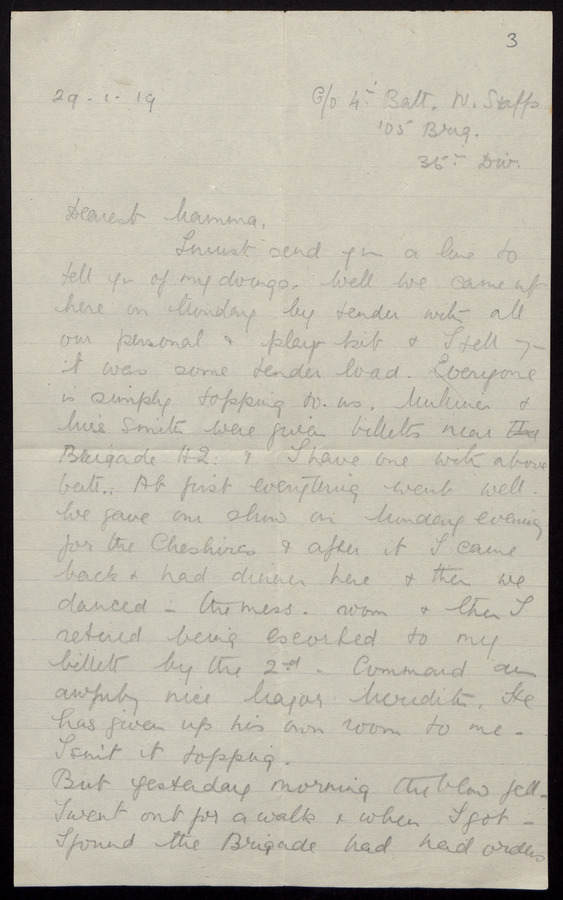 3
29 - 1 - 19
C/o 4th Batt. N. Staffs
105 Brig.
35th Div.
Dearest Mamma,
I must send you a line to
tell you of my doings. Well we came up
here on Monday by tender with all
our personal & plays kit & I tell you
it was some tender load. Everyone
is simply topping to us.
Miss Smith were given billets near the
Brigade H.Q. & I have one with above
batt.. At first everything went well.
We gave our show on Monday evening
for the Cheshires & after it I came
back & had dinner here & then we
danced in the mess. room & then I
retired being escorted to my
billett by the 2nd in Command an
awfully nice Major Meredith. He
has given up his own room to me -
Isn't it topping.
But yesterday morning the blow fell.
I went out for a walk & when I got in
I found the Brigade had had orders